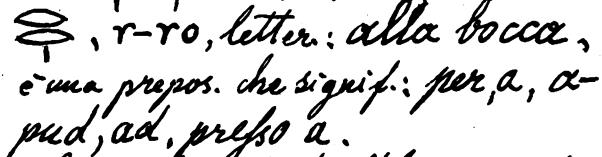 , r-ro, letter.: alla bocca,
è una prepos. che signif.: per, a, a-
pud, ad, presso a.